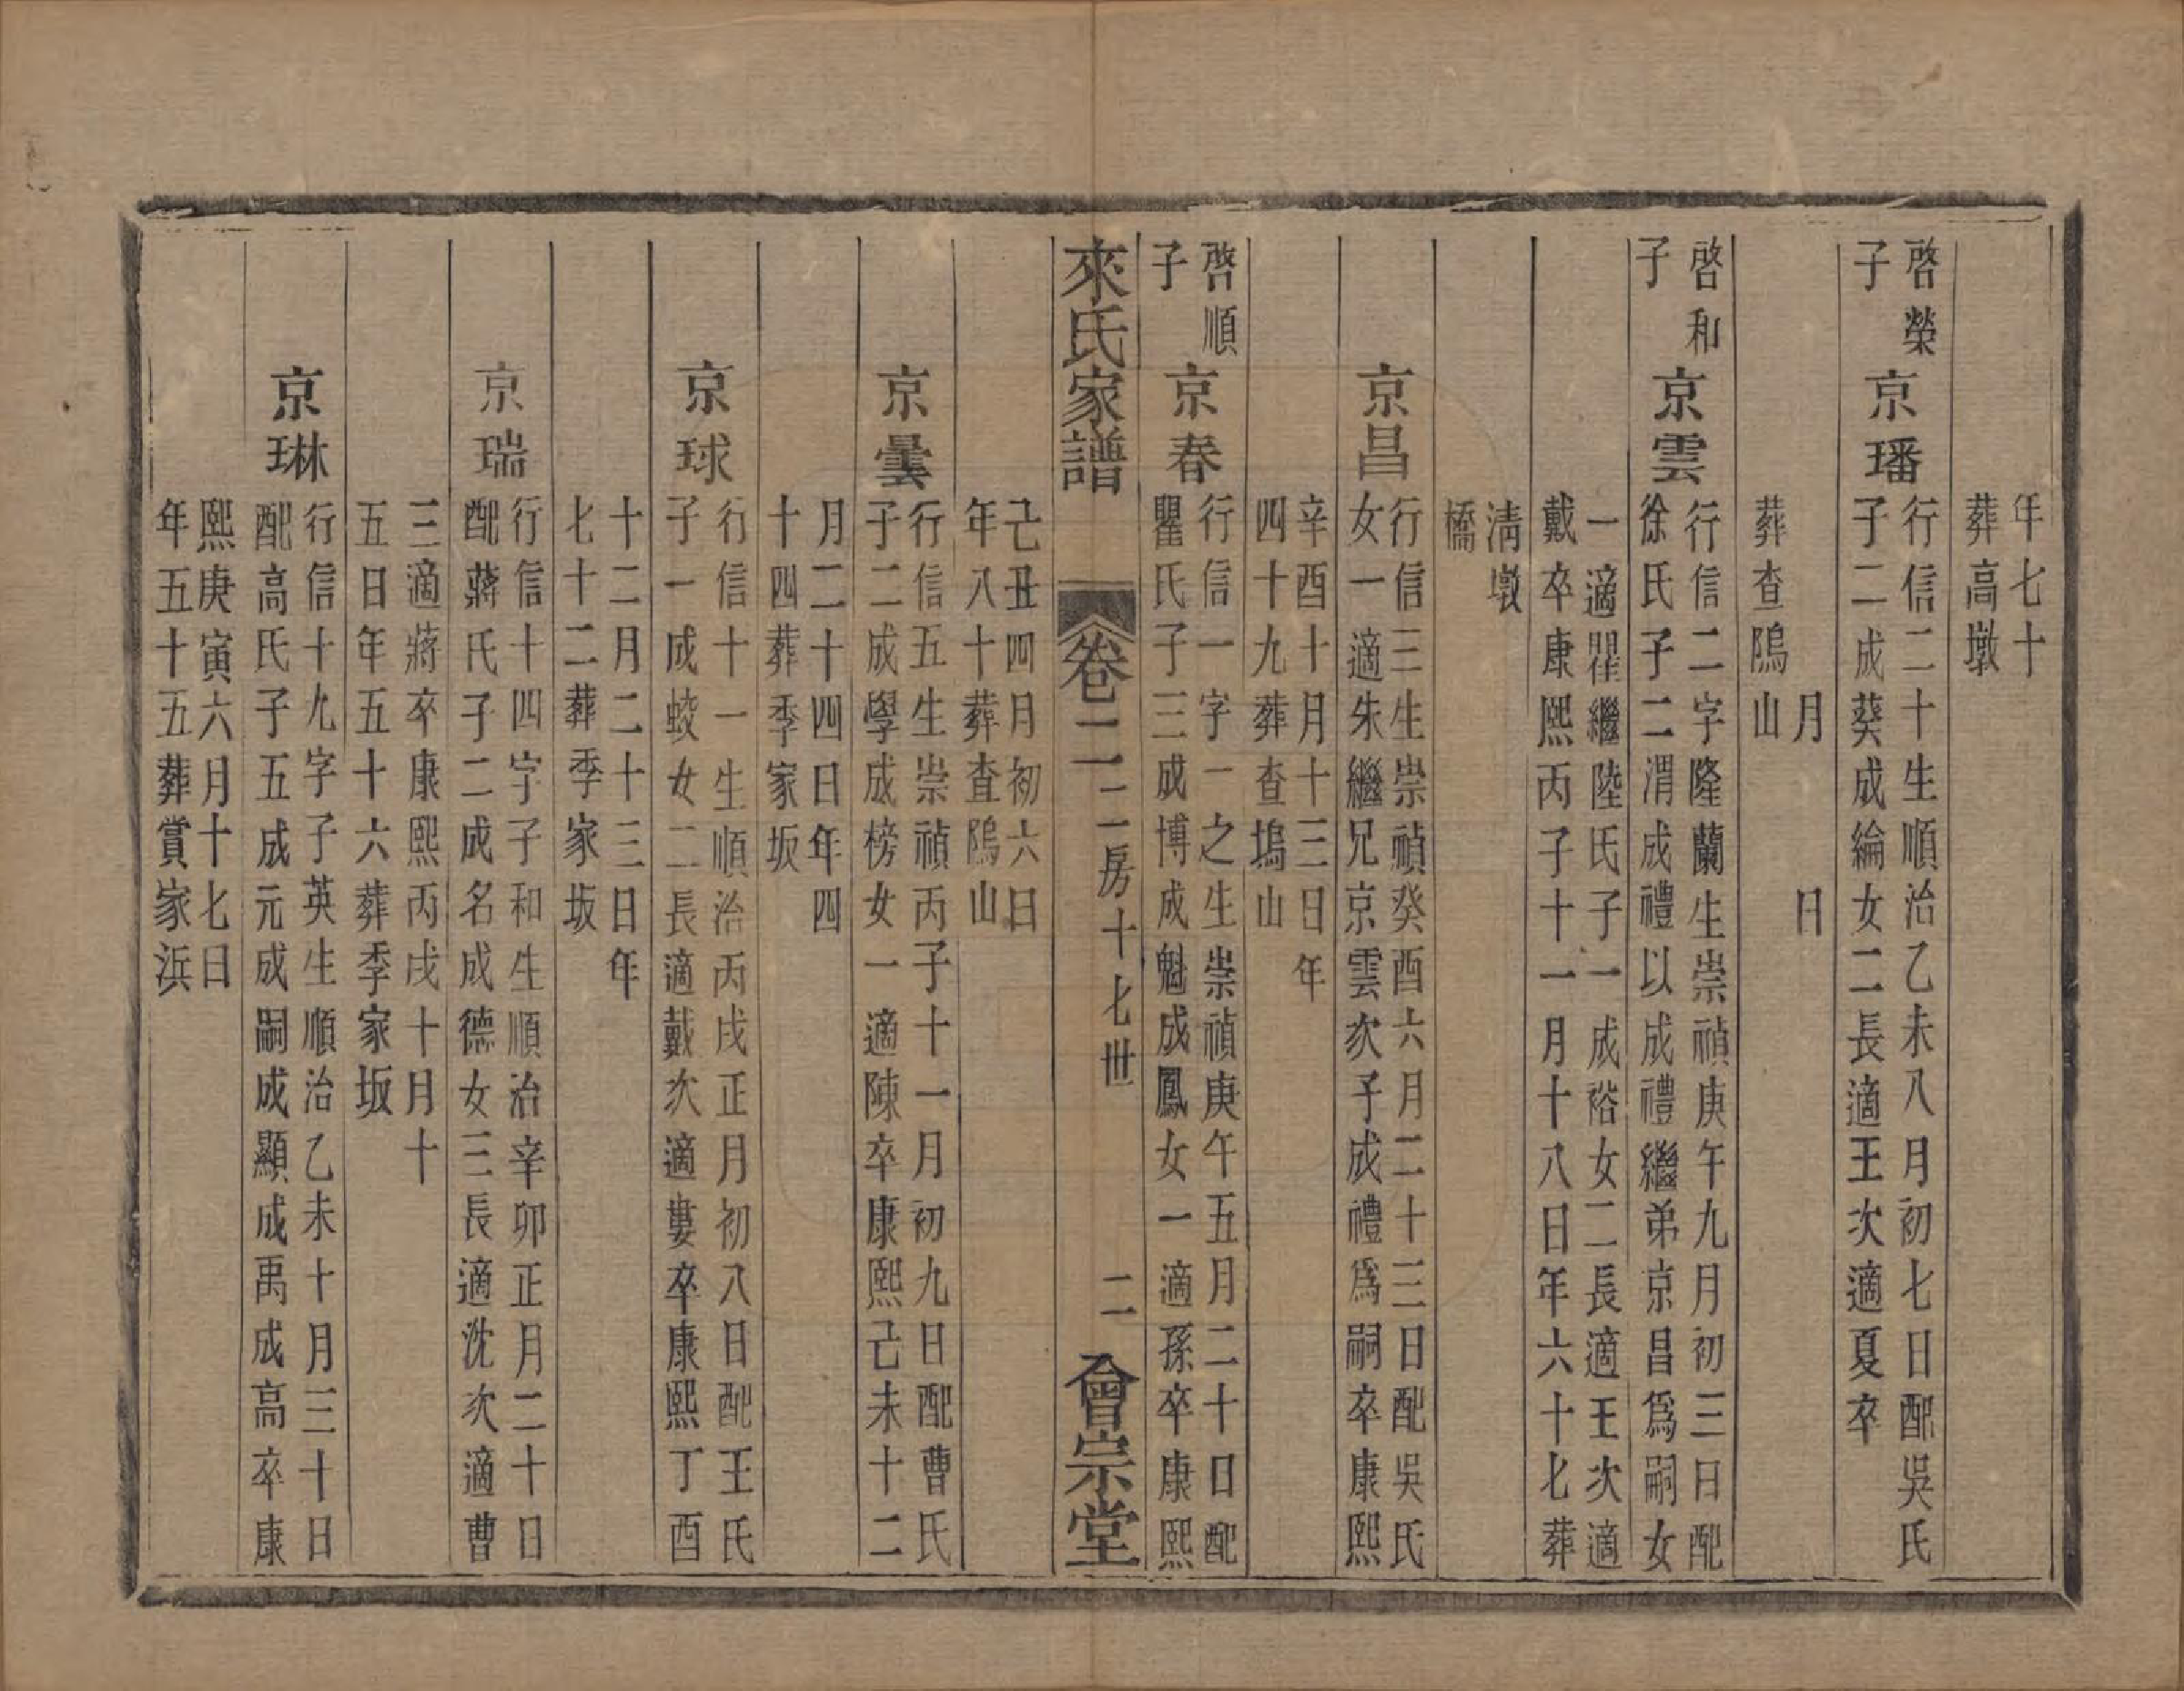 年七十
葬高墩
啓榮
子
京璠
行信二十生順治乙未八月初七日配吳氏
子二成葵成綸女二長適王次適夏卒
月　日
葬查隝山
啓和
子
京雲
行信二字隆蘭生崇禎庚午九月初三日配
徐氏子二渭成禮以成禮繼弟京昌爲嗣女
一適瞿繼陸氏子一成裕女二長適王次適
戴卒康熙丙子十一月十八日年六十七葬
淸墩
橋
京昌
行信三生崇禎癸酉六月二十三日配吳氏
女一適朱繼兄京雲次子成禮爲嗣卒康熙
辛酉十月十三日年
四十九葬查塢山
啓順
子
京春
行信一字一之生崇禎庚午五月二十日配
瞿氏子三成博成魁成鳳女一適孫卒康熙
來氏家譜
卷二
二房十七世
二
會宗堂
己丑四月初六日
年八十葬查隝山
京曇
行信五生崇禎丙子十一月初九日配曹氏
子二成學成榜女一適陳卒康熙己未十二
月二十四日年四
十四葬季家坂
京球
行信十一生順治丙戌正月初八日配王氏
子一成蛟女二長適戴次適婁卒康熙丁酉
十二月二十三日年
七十二葬季家坂
京瑞
行信十四字子和生順治辛卯正月二十日
配蔣氏子二成名成德女三長適沈次適曹
三適蔣卒康熙丙戌十月十
五日年五十六葬季家坂
京琳
行信十九字子英生順治乙未十月三十日
配高氏子五成元成嗣成顯成禹成高卒康
熙庚寅六月十七日
年五十五葬賞家浜